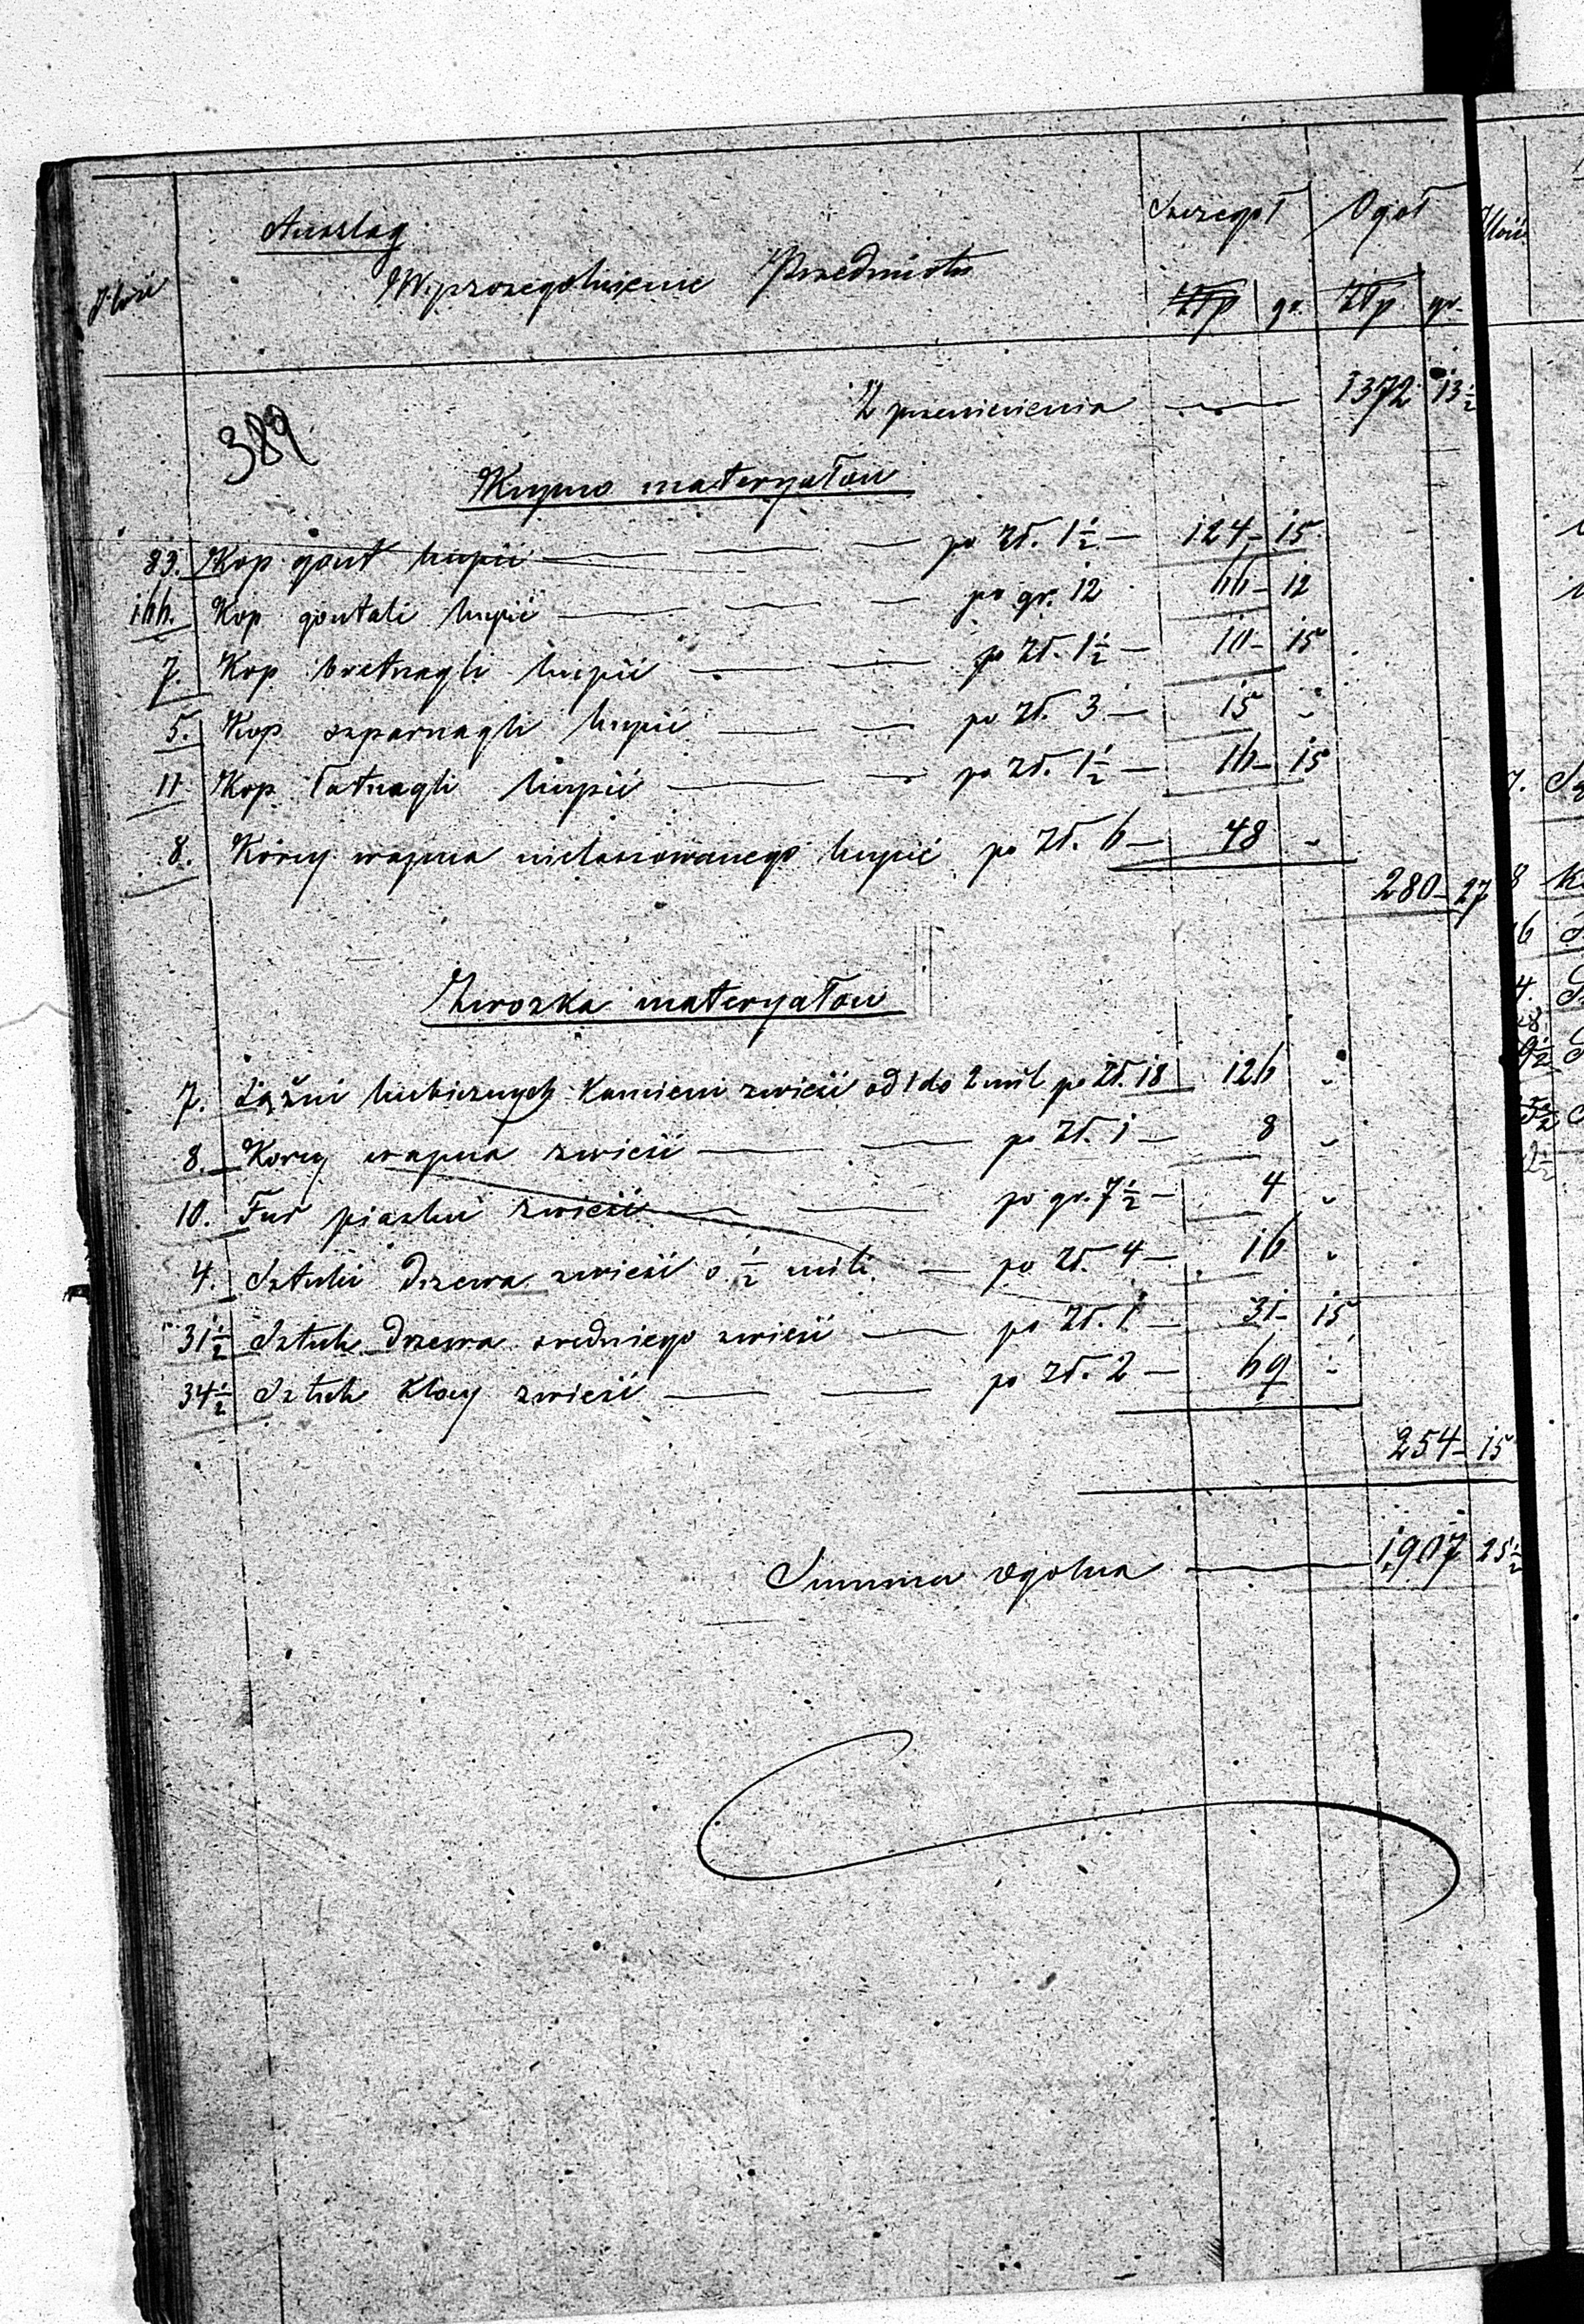 Anszlag
Szczegół Ogół
Ilość Wyszczegolnienie Przedmiotu
Złp gr. Złp. gr.
Z przeniesienia 1372 13 1/2
389
Kupno materyałow
83. Kop gont kupić po zł. 1 1/2 — 124 - 15
166. Kop gontali kupić po gr. 12 66 - 12
7. Kop bretnagli kupić po zł. 1 1/2 — 10 - 15
5. Kop szparnagli kupić po zł. 3 — 15 "
11 Kop łatnagli kupić po zł. 1 1/2 — 16 - 15
8. Korcy wapna nielasowanego kupić po zł. 6 — 48 "
280 - 27
Zwozka materyałow
7. Sążni kubicznych kamieni zwieść od 1 do 2 mil po zł. 18 126 "
8. Korcy wapna zwieść po zł. 1 — 8 "
10. Fur piasku zwieść po gr. 7 1/2 — 4 "
4. Sztuki drzewa zwieść o 1/2 mili — po zł. 4 — 16 "
31 1/2 Sztuk drzewa sredniego zwieść po zł. 1 — 31 - 15
34 1/2 Sztuk klocy zwieść po zł. 2 — 69 "
254 - 15
Summa ogolna 1907 25 1/2